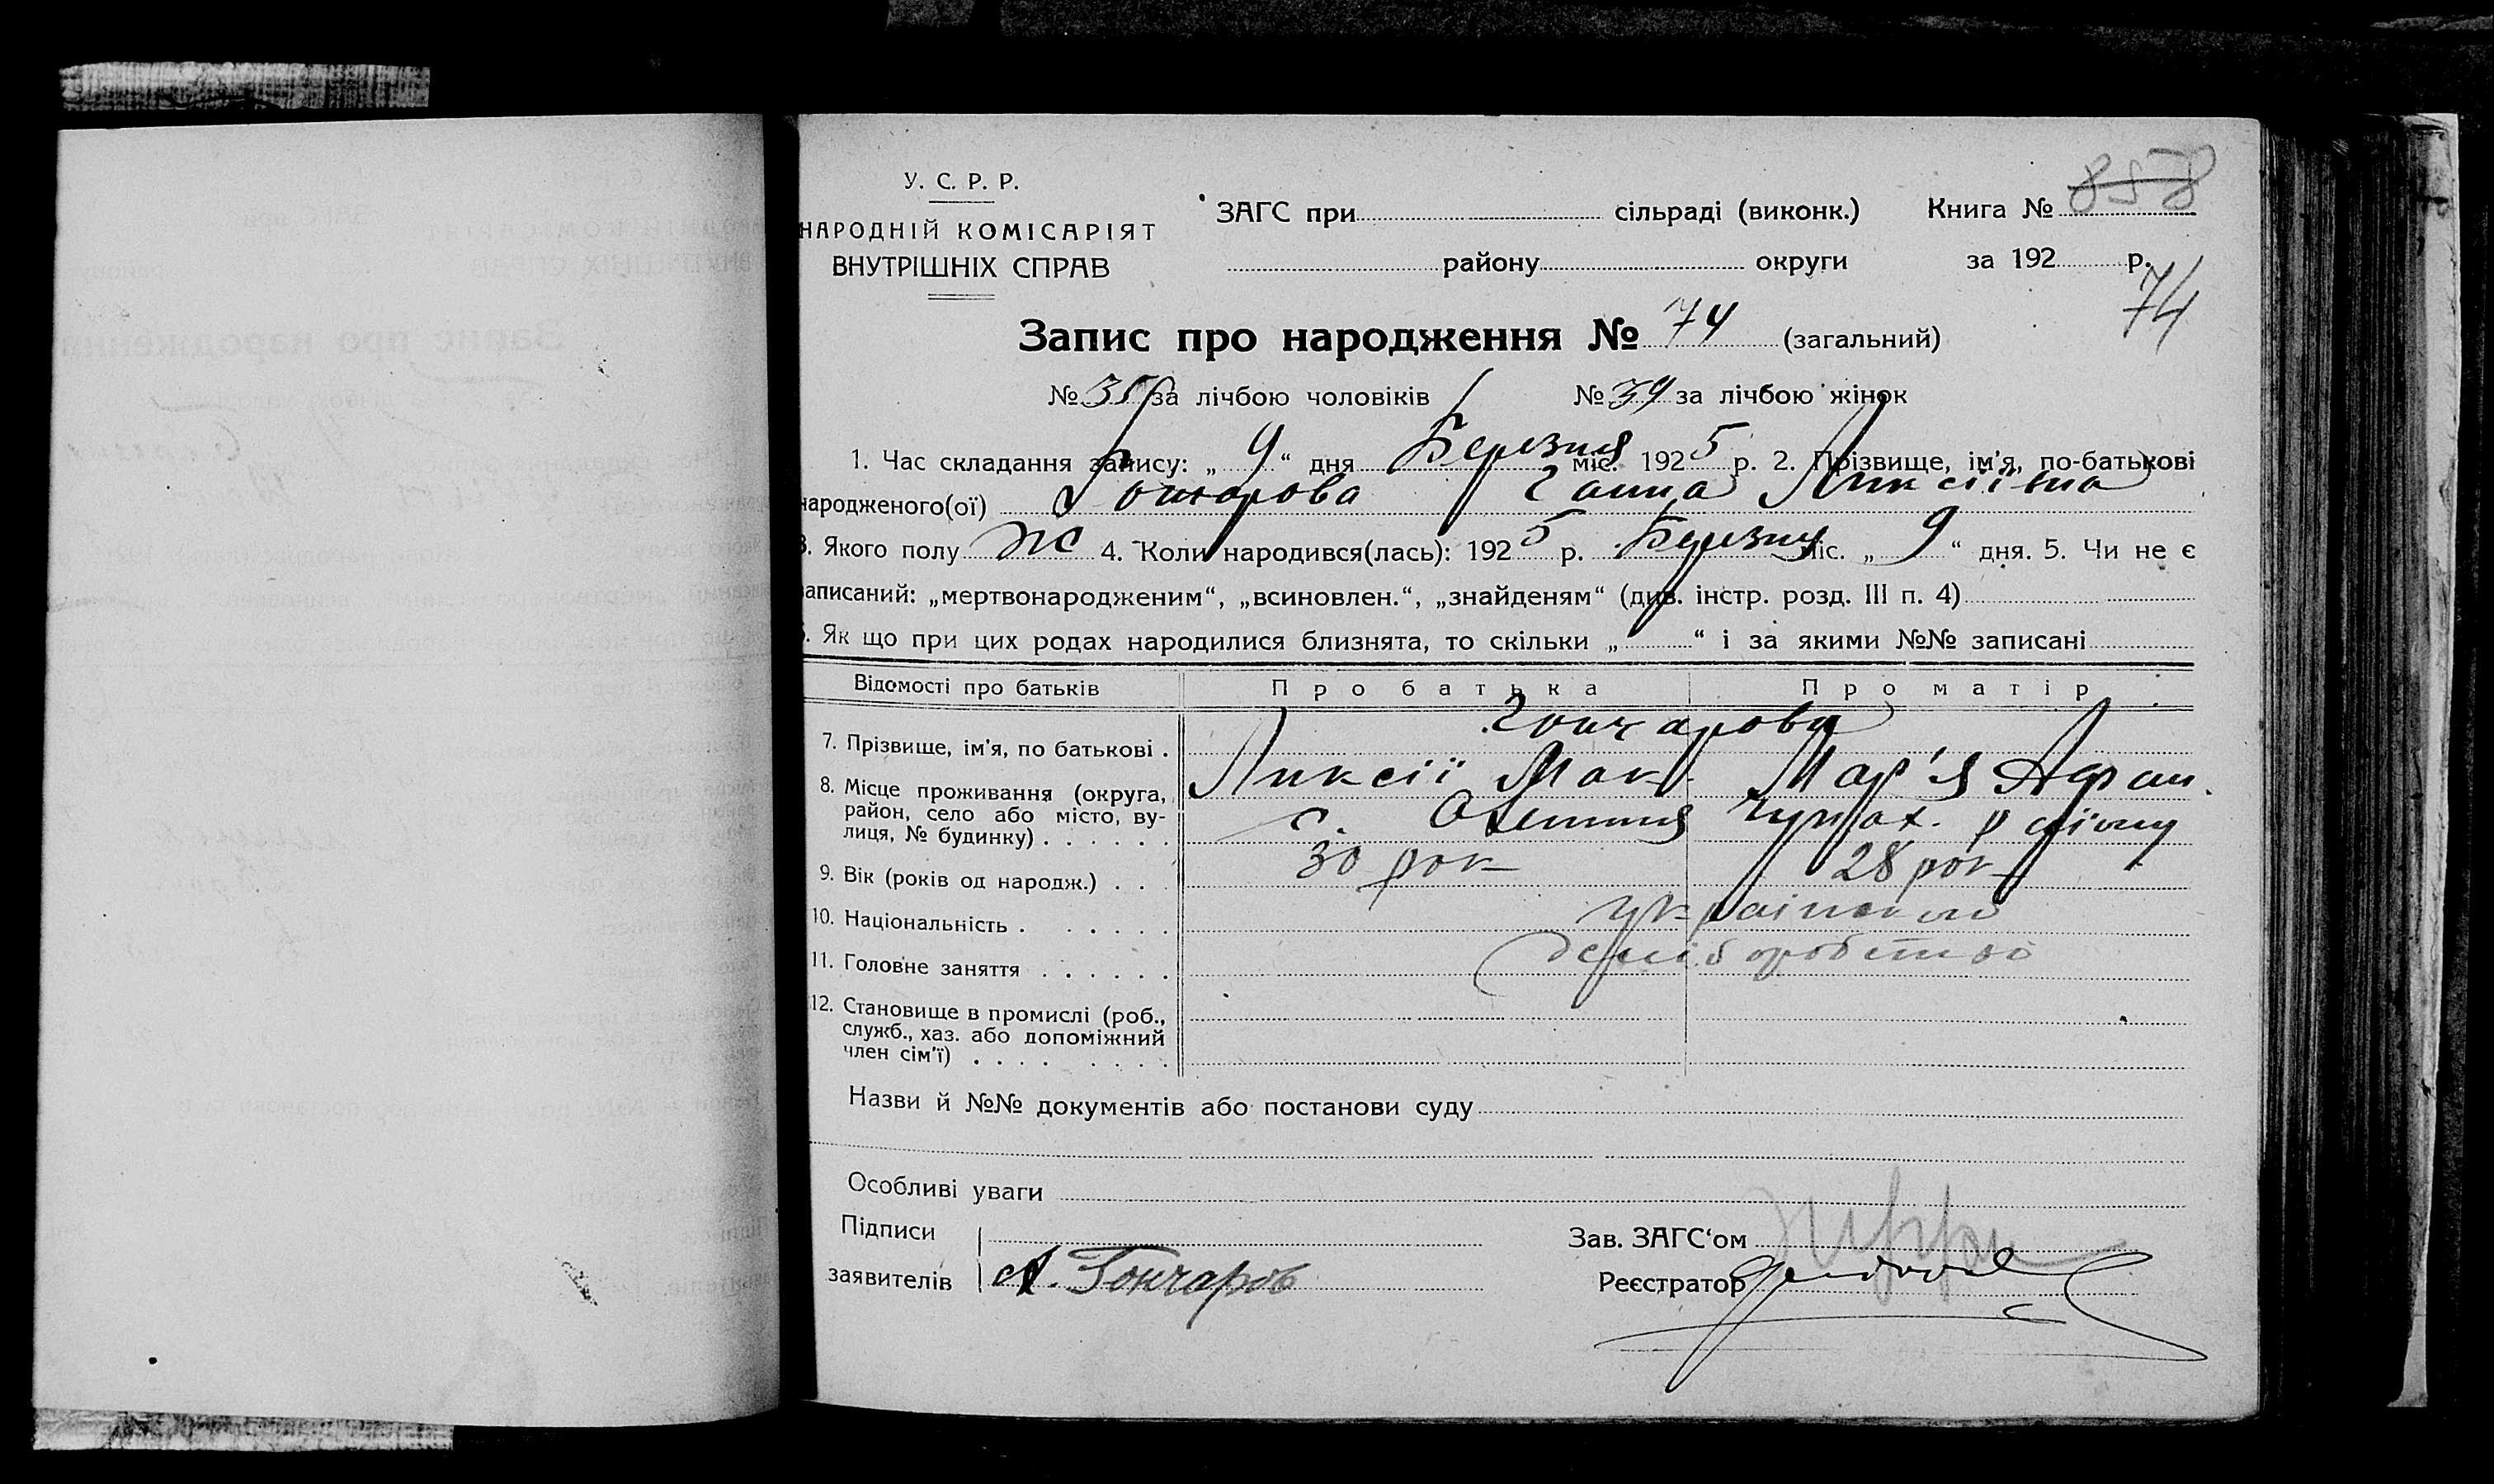 У. С. Р. Р.
НАРОДНІЙ КОМІСАРІЯТ
ВНУТРІШНІХ СПРАВ
ЗАГС при сільраді (виконк.) Книга № 858
району округи за 192 р.
74
Запис про народження № 74 (загальний)
№ 35 за лічбою чоловіків № 39 за лічбою жінок
1. Час складання запису: „ 9 “ дня Березня міс. 1925 р. 2. Прізвище, ім'я, по-батькові
народженого(ої) Гончарова Ганна Ликсіївна
3. Якого полу Ж 4. Коли народився(лась): 1925 р. Березня міс. „ 9 “ дня. 5. Чи не є
записаний: „мертвонародженим“, „всиновлен.“, „знайденям“ (див. інстр. розд. III п. 4)
6. Як що при цих родах народилися близнята, то скільки „ “ і за якими №№ записані
Відомості про батьків Про батька Про матір
7. Прізвище, ім'я, по батькові . Гончарови
Ликсії Мак. Мар'я Афан.
8. Місце проживання (округа, район, село або місто, вулиця, № будинку) . . . . . . с. району
9. Вік (років од народж.) . . . 30 рок 28 рок
10. Національність . . . . . .
11. Головне заняття . . . . . .
12. Становище в промислі (роб., служб., хаз. або допоміжний член сім'ї) . . . . . . . .
Назви й №№ документів або постанови суду
Особливі уваги
Підписи
заявителів А. Гончаров
Зав. ЗАГС‘ом
Реєстратор